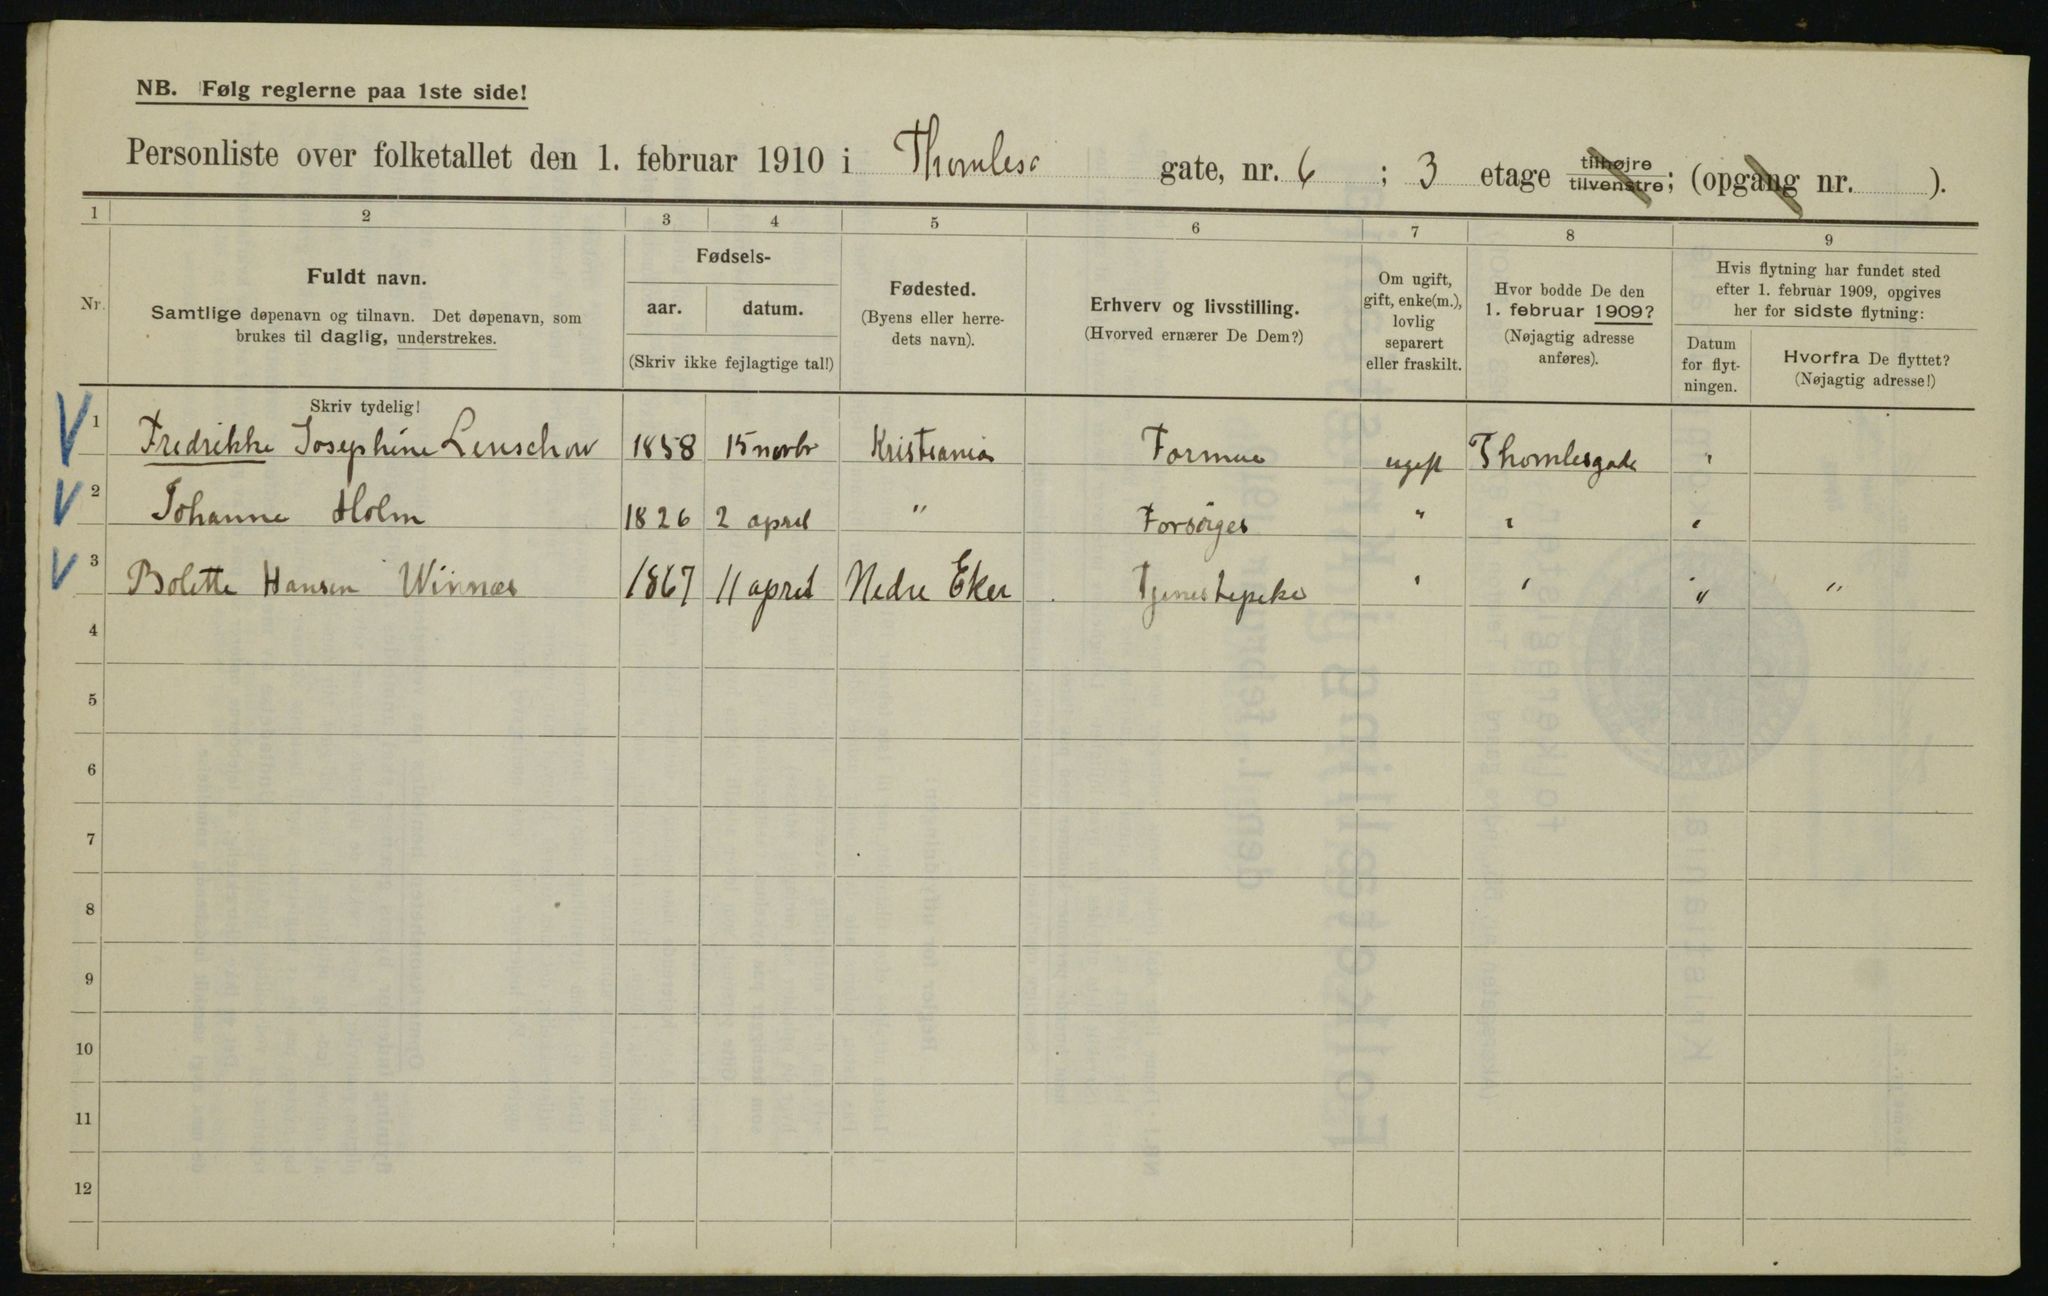 NB. Følg reglerne paa 1ste side!
Personliste over folketallet den 1. februar 1910 i Thomlesø gate, nr. 6 ; 3 etage tilhøjre tilvenstre; (opgang nr. ).
1 2 3 4 5 6 7 8 9
Nr.
Fuldt navn.
Samtlige døpenavn og tilnavn. Det døpenavn, som
brukes til daglig, understrekes.
Fødsels-
aar. datum.
(Skriv ikke fejlagtige tal!)
Fødested.
(Byens eller herre-
dets navn).
Erhverv og livsstilling.
(Hvorved ernærer De Dem?)
Om ugift,
gift, enke(m.),
lovlig
separert
eller fraskilt.
Hvor bodde De den
1. februar 1909?
(Nøjagtig adresse
anføres).
Hvis flytning har fundet sted
efter 1. februar 1909, opgives
her for sidste flytning:
Datum
for flyt-
ningen.
Hvorfra De flyttet?
(Nøjagtig adresse!)
Skriv tydelig!
1 Fredrikke Josephine Lenschow 1858 15 novbr Kristiania Formue ugift Thomlesgade "
2 Johanne Holm 1826 2 april " Forsørges " " "
3 Bolette Hansen Winnæs 1867 11 april Nedre Eker Tjenestepike " " " "
4
5
6
7
8
9
10
11
12